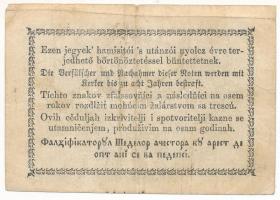 Ezen jegyek' hamisítói 's utánzói nyolcz évre ter-
jedhető börtönöztetéssel büntettetnek.
Die Verfälscher und Nachahmer dieser Noten werden mit
Kerker bis zu acht Jahren bestraft.
Tíchto znakov zfalšovníci a následníci na osem
rokov rozdlžit mohúcim žalárstvom sa trescú.
Ovih céduljah izkrivitelji i spotvoritelji kazne se
utamničenjem, produživim na osam godinah.
Фалзіфікаторꙋл Шеделор ачестора кꙋ арест де
опт ані се ва педепсі.